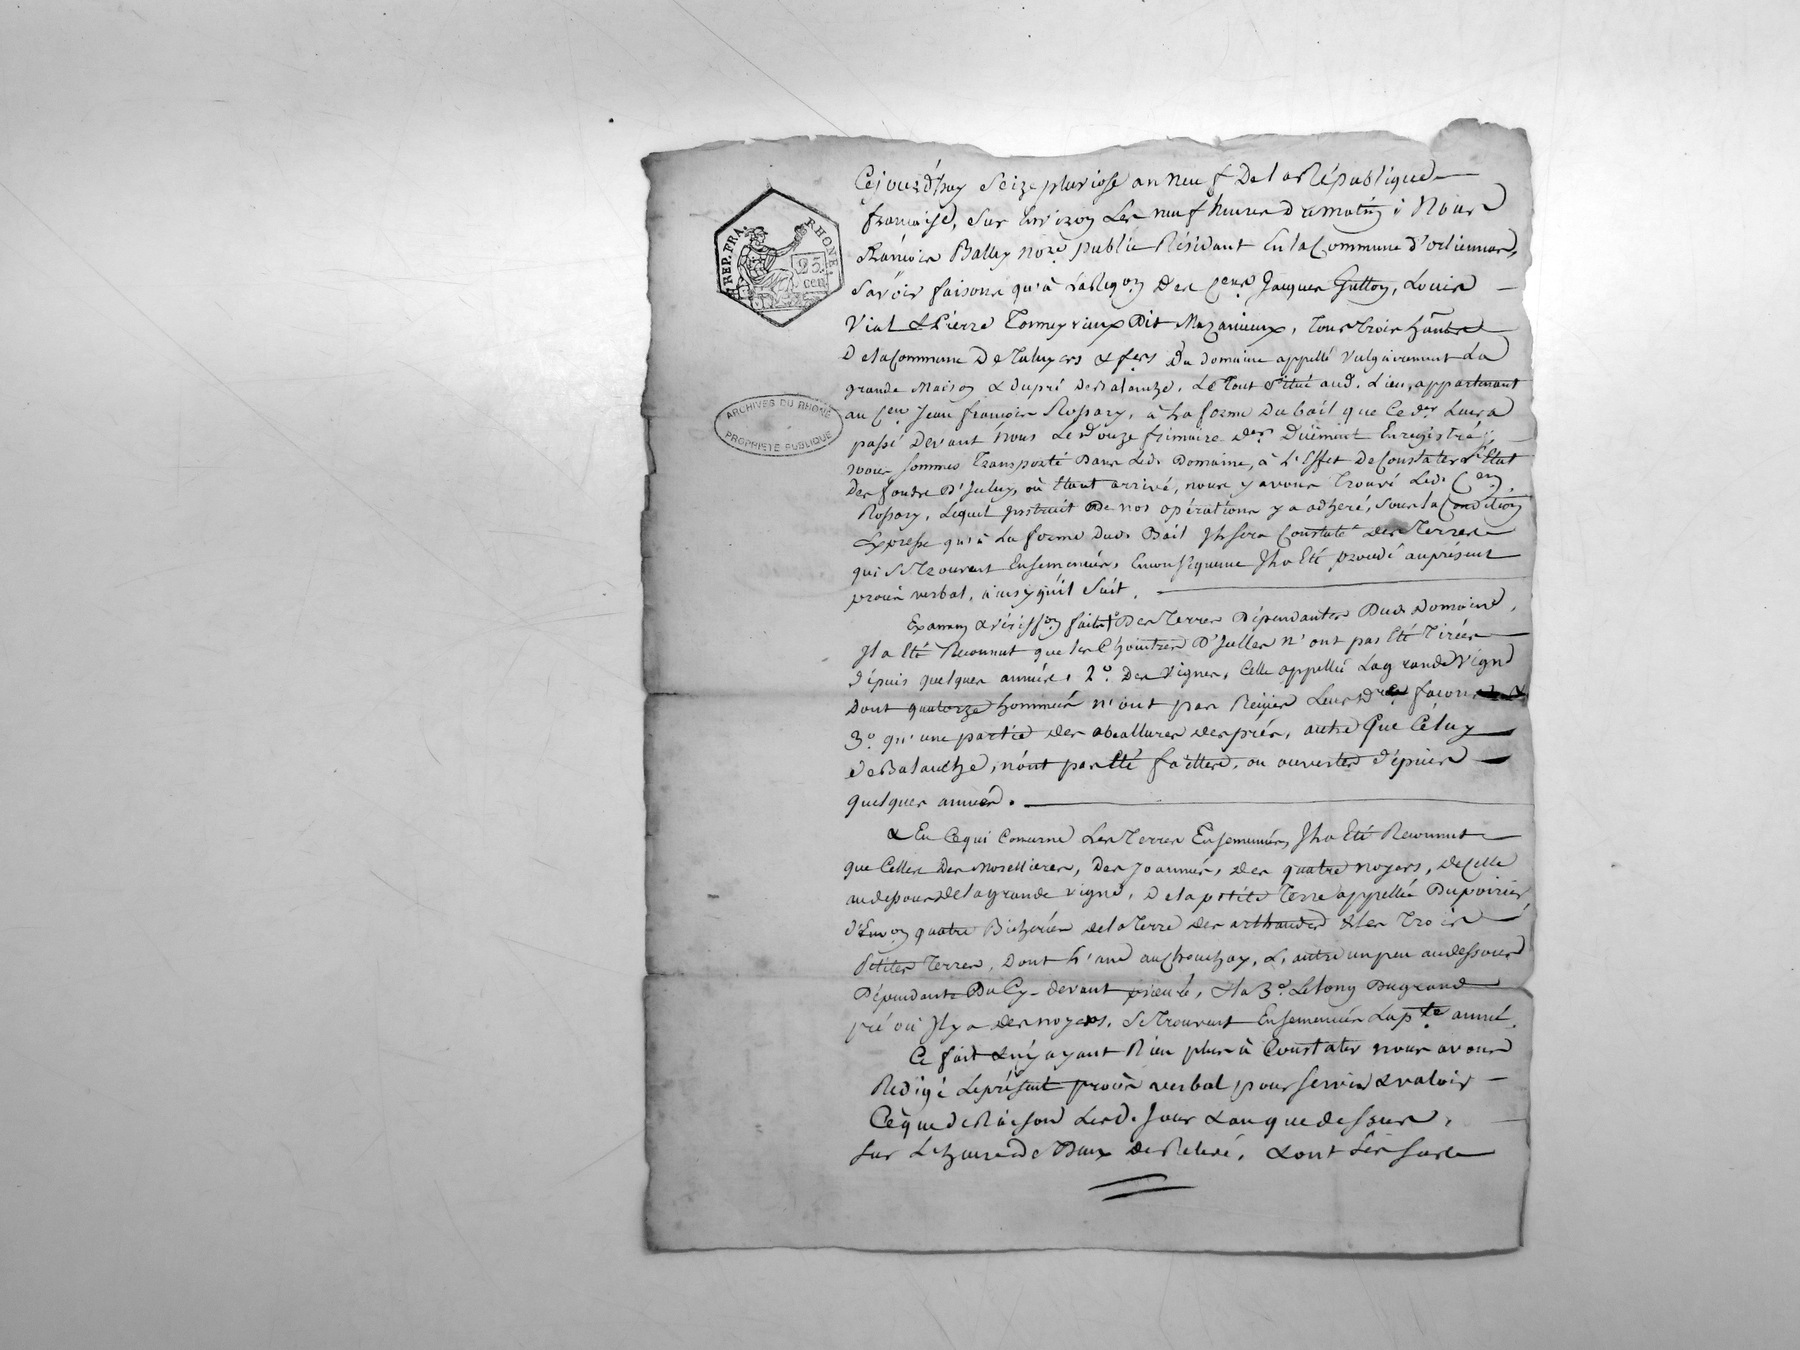 REP. FRA. RHONE.
25 cen.
ARCHIVES DU RHONE
PROPRIETE PUBLIQUE
Cejourd'huy Seize pluviose an neuf De la République
françoise, Sur Environ Les neuf heures du matin ; Nous
François Balley no.re public Résidant En la Commune d'orlienas,
Savoir faisons qu'à des C.ens Jacques Guttoy, Louis
Vial & Pierre dit Mazanieux, Tous trois
De la Commune De Taluyers & f.ers Du domaine appellé Vulgairement La
grande Maison & dupré , Le Tout Situé aud. Lieu, appartenant
au C.en Jean françois Rossary, à La forme Du bail que Ce d.er Leur a
passé Devant nous Le douze frimaire d.er Duëment Enregistré ;
nous Sommes Transporté Dans Led. Domaine, à L'Effet De Constater L'Etat
Des fonds D'Iceluy, où Etant arrivé, nous y avons Trouvé Led. C.en
Rossary, Lequel Instruit De nos opérations y a adhéré, Sous la Condition
Expresse qu'à La forme Dud. Bail Il Sera Constaté des Terres
qui Se Trouvent Ensemencées, En conséquence Il a Eté procedé au présent
procès verbal, ainsy qu'il Suit.
Examen & vériff.on faite 1.o Des Terres Dépendantes Dud. Domaine,
Il a Eté Reconnut que les Chaintres D'Icelles n'ont pas Eté Tirées
dépuis quelques années, 2.o Des Vignes, Celle appellée La grande Vigne
Dont quatorze hommées n'ont pas Reçües Leurs façons
3.o qu'une partie des des prés, autre que Céluy
, n'ont pas Eté faittes, ou ouvertes dépuis
quelques années.
& En Ce qui Concerne Les Terres Ensemencées, Il a Eté Reconnut
que Celles Des , Des Joannés, des quatre noyers, de Celle
au dessous de la grande vigne, De la petite Terre appellée Du poirier
d'Env.on quatre Bicherées de la Terre des & Les Trois
Petites Terres, Dont L'une , L'autre un peu au dessous
Dépendante Du Cy-devant prieuré, & a 3.o Le Long Du grand
pré où Il y a des noyers, Se Trouvent Ensemencées La p.te année.
Ce fait & n'y ayant Rien plus à Constater nous avons
Redigé Le présent procès verbal pour Servir & valoir
Ce que de Raison Lesd. Jour & an que dessus,
Sur L'heure de Deux de Relevé,